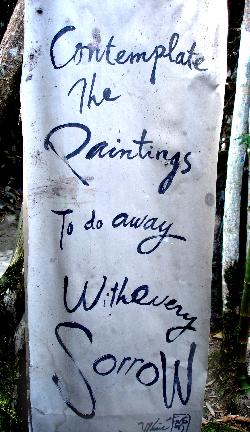 Contemplate
The
Paintings
To do away
With every
Sorrow